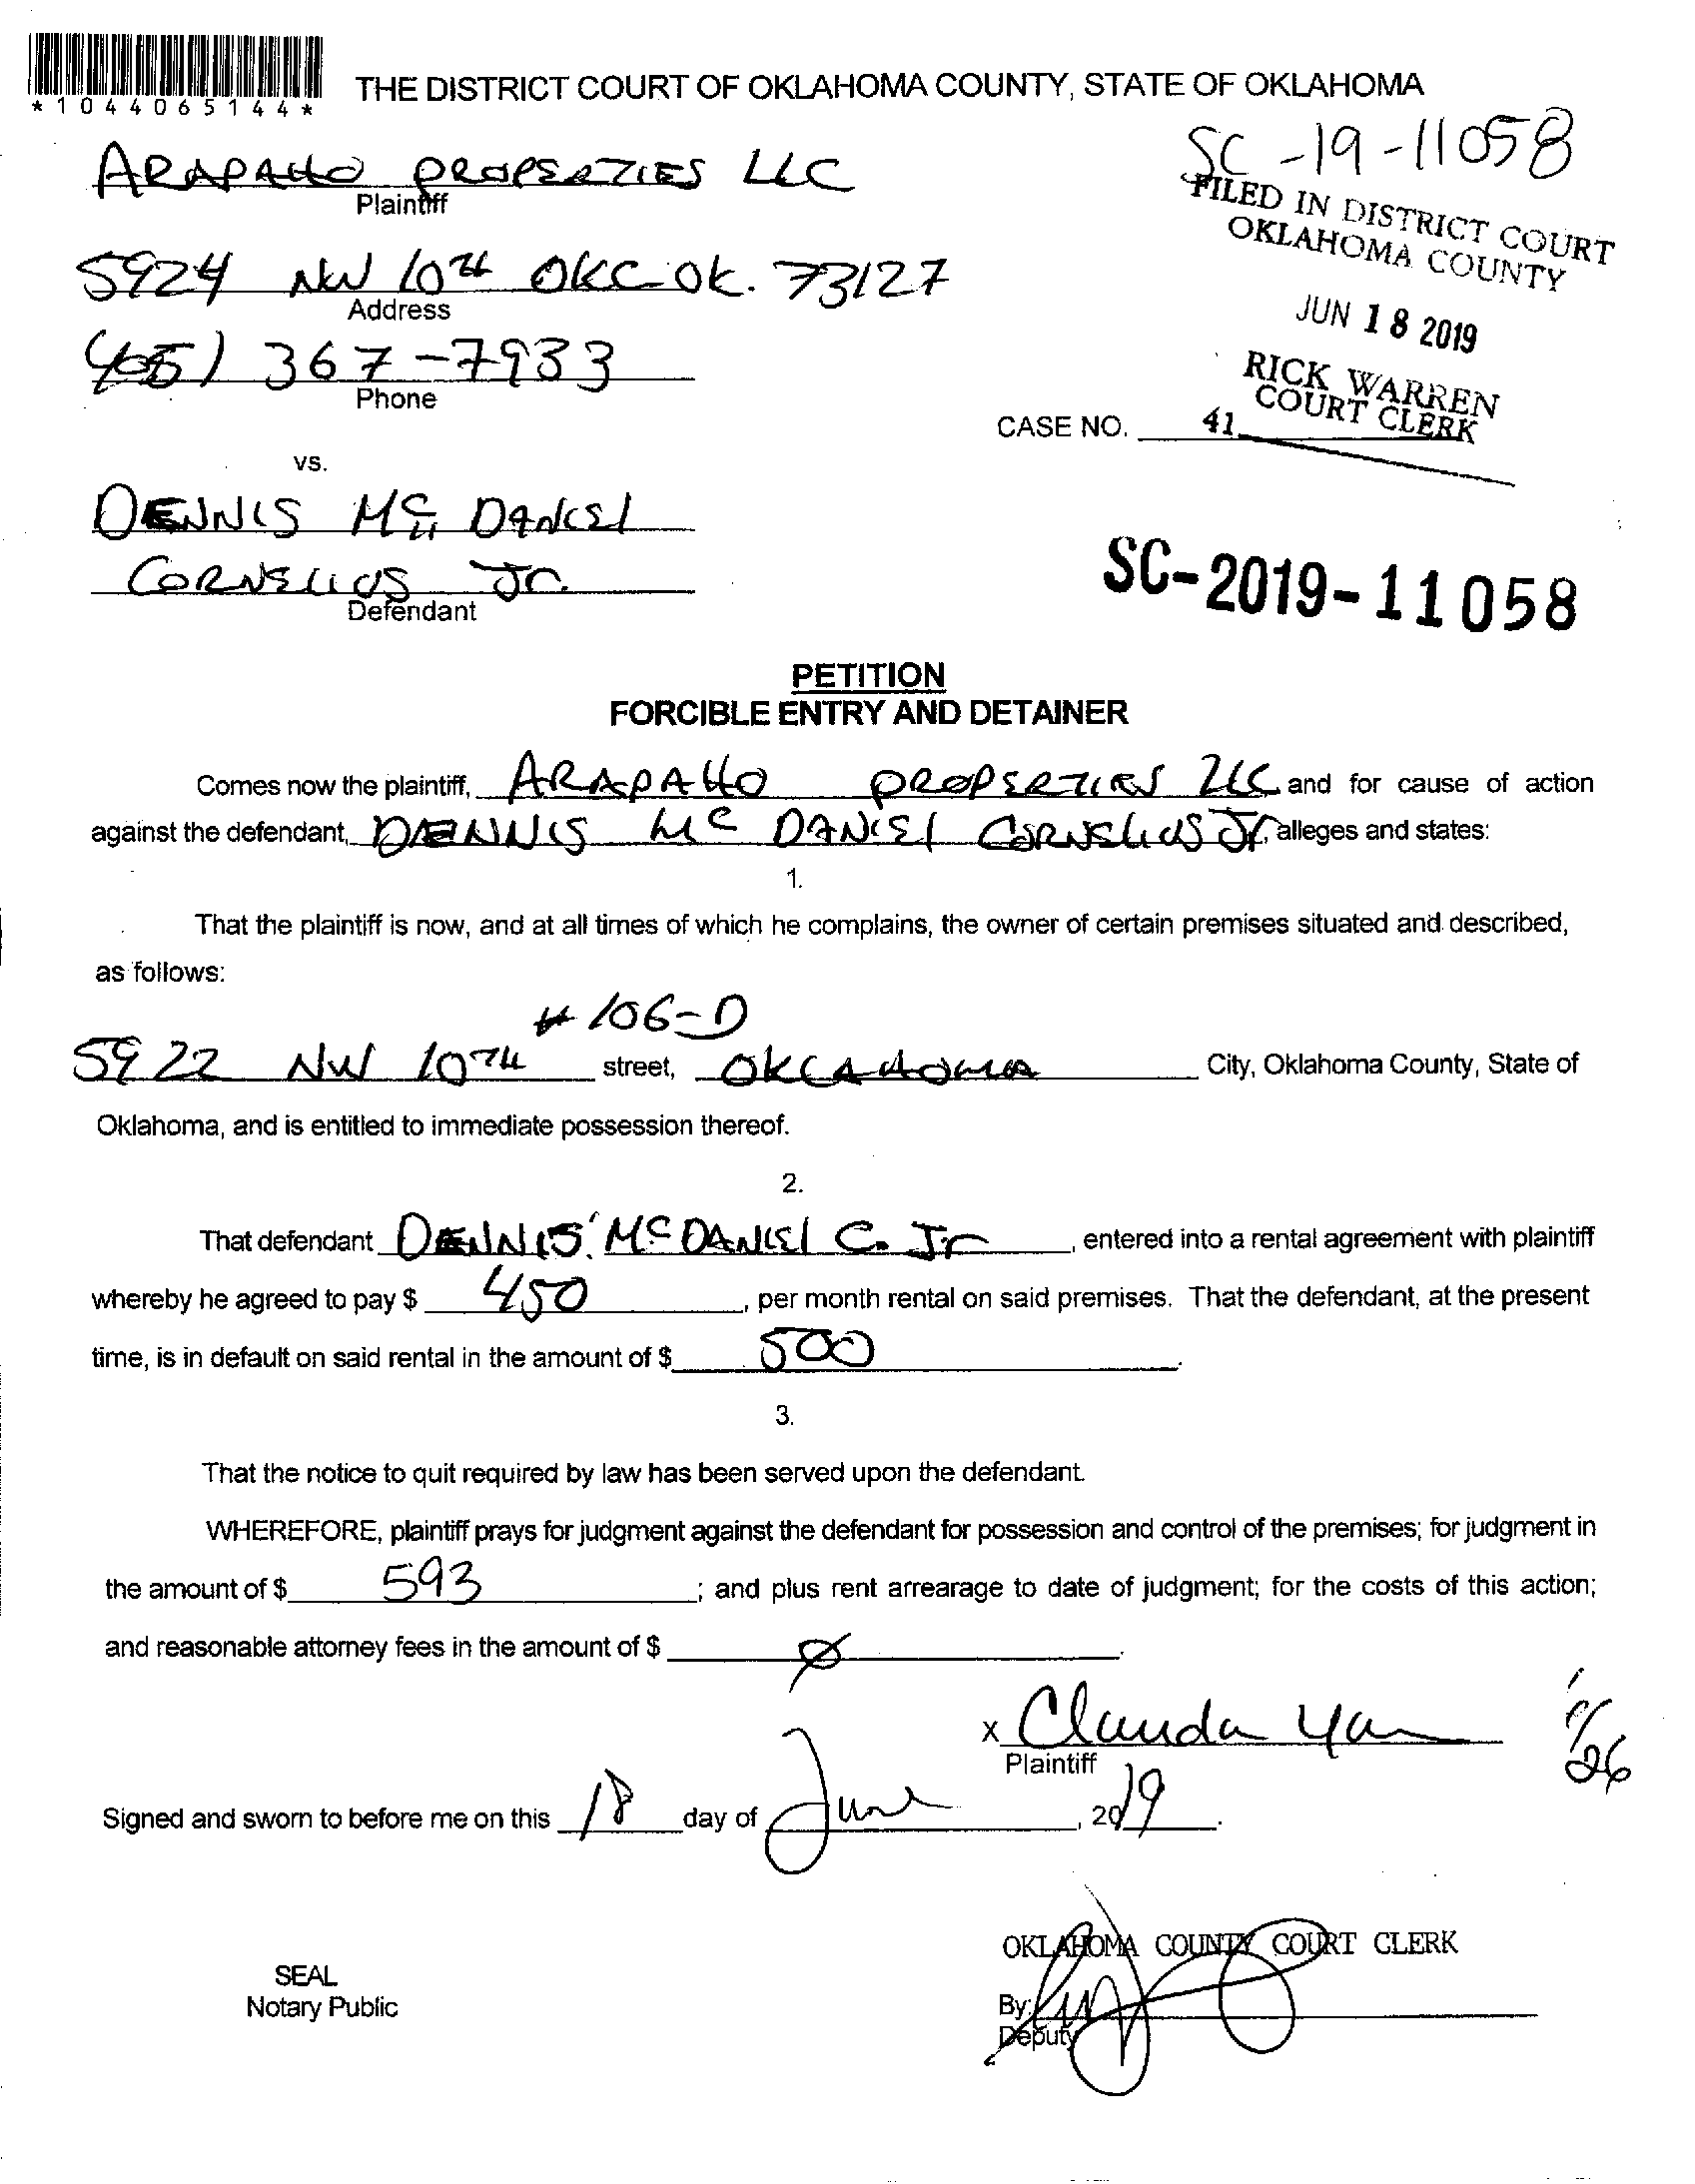 *1044065144*
THE DISTRICT COURT OF OKLAHOMA COUNTY, STATE OF OKLAHOMA
SC-19-11058
ARAPAHO PROPERTIES LLC
Plaintiff
FILED IN DISTRICT COURT
OKLAHOMA COUNTY
5924 NW 10TH OKC OK. 73127
Address
JUN 18 2019
(405) 367-7933
Phone
RICK WARREN
COURT CLERK
CASE NO. 41
vs.
DENNIS Mc DANIEL
CORNELIUS Jr.
Defendant
SC-2019-11058
PETITION
FORCIBLE ENTRY AND DETAINER
Comes now the plaintiff, ARAPAHO PROPERTIES LLC and for cause of action
against the defendant, DENNIS Mc DANIEL CORNELIUS Jr, alleges and states:
1.
That the plaintiff is now, and at all times of which he complains, the owner of certain premises situated and described,
as follows:
# 106-D
5922 NW 10TH street, OKLAHOMA City, Oklahoma County, State of
Oklahoma, and is entitled to immediate possession thereof.
2.
That defendant DENNIS McDANIEL C. Jr, entered into a rental agreement with plaintiff
whereby he agreed to pay $ 450, per month rental on said premises. That the defendant, at the present
time, is in default on said rental in the amount of $ 500.
3.
That the notice to quit required by law has been served upon the defendant.
WHEREFORE, plaintiff prays for judgment against the defendant for possession and control of the premises; for judgment in
the amount of $ 593; and plus rent arrearage to date of judgment; for the costs of this action;
and reasonable attorney fees in the amount of $ Ø.
X Claudia Yan
Plaintiff
Signed and sworn to before me on this 18 day of June, 2019.
OKLAHOMA COUNTY COURT CLERK
SEAL
Notary Public
By:
Deputy